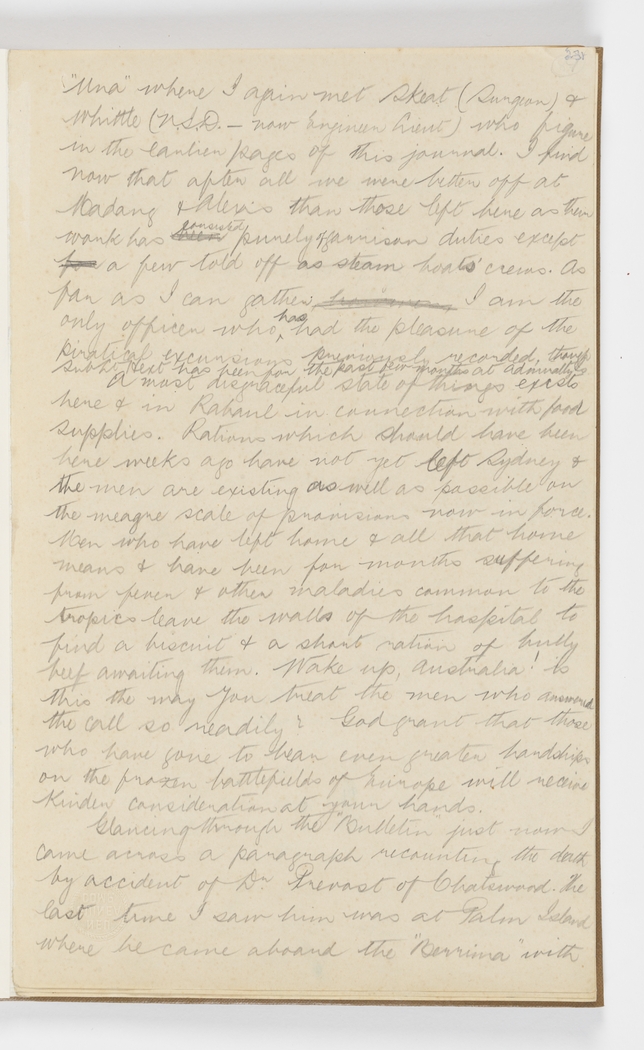 231
"Una" where I again met Skeat (Surgeon) &
Whittle (N.S.D. — now Engineer Lieut) who figure
in the earlier pages of this journal. I find
now that after all we were better off at
Madang & Alexis than those left here as their
work has been consisted purely of garrison duties except
for a few told off as steam boats' crews. As
far as I can gather I am the
only officer who has had the pleasure of the
piratical excursions previously recorded, though
Sub Lt. Hext has been for the past few months at Admiralty Is
A most disgraceful state of things exists
here & in Rabaul in connection with food
supplies. Rations which should have been
here weeks ago have not yet left Sydney &
the men are existing as well as possible on
the meagre scale of provisions now in force.
Men who have left home & all that home
means & have been for months suffering
from fever & other maladies common to the
tropics leave the walls of the hospital to
find a biscuit & a short ration of bully
beef awaiting them. Wake up, Australia! is
this the way you treat the men who answered
the call so readily? God grant that those
who have gone to bear even greater hardships
on the frozen battlefields of Europe will receive
kinder consideration at your hands.
Glancing through the "Bulletin" just now I
came across a paragraph recounting the death
by accident of Dr Prevost of Chatswood. The
last time I saw him was at Palm Island
where he came aboard the "Berrima" with